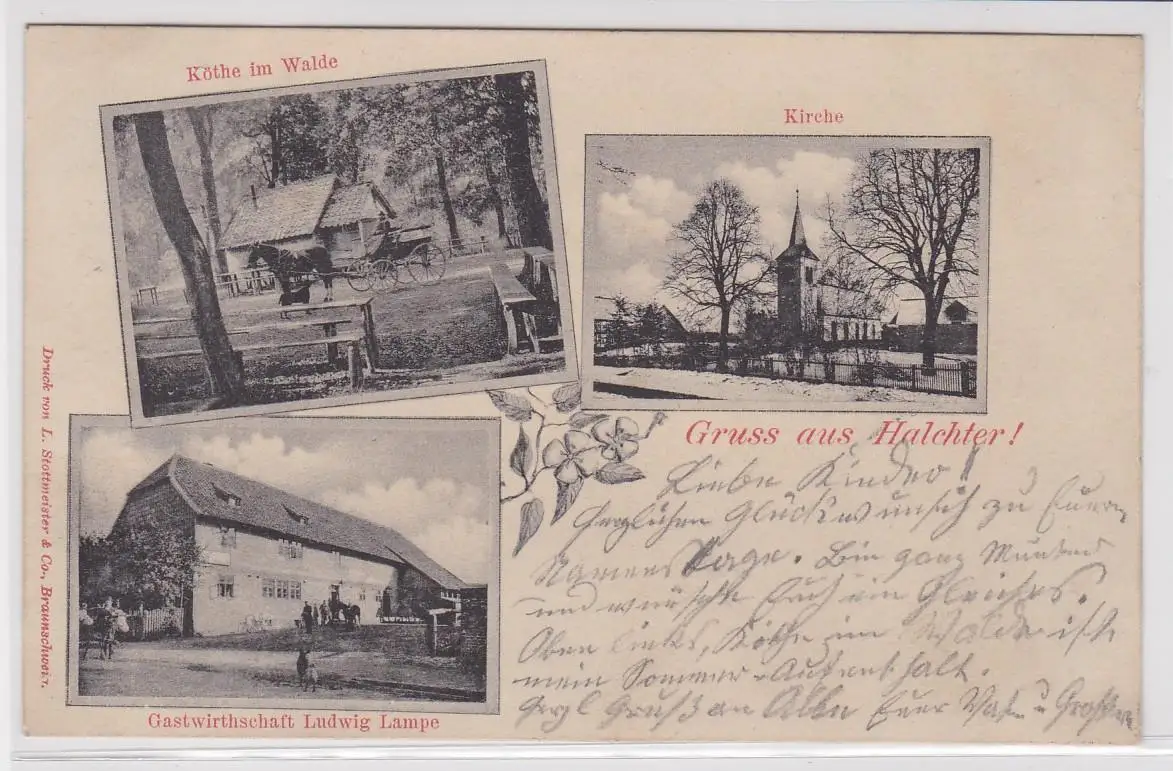 Köthe im Walde
Kirche
Druck von L. Stottmeister & Co., Braunschweig.
Gruss aus Halchter!
Liebe Kinder!
Herzlichen Glückwunsch zu Euern
Namens Tage. Bin ganz Munter
und wünsche Euch ein Gleiches.
Oben links, Köthe im Walde ist
mein Sommer-Aufenthalt.
Herzl Gruß an Alle Euer Vater u Großv
Gastwirthschaft Ludwig Lampe